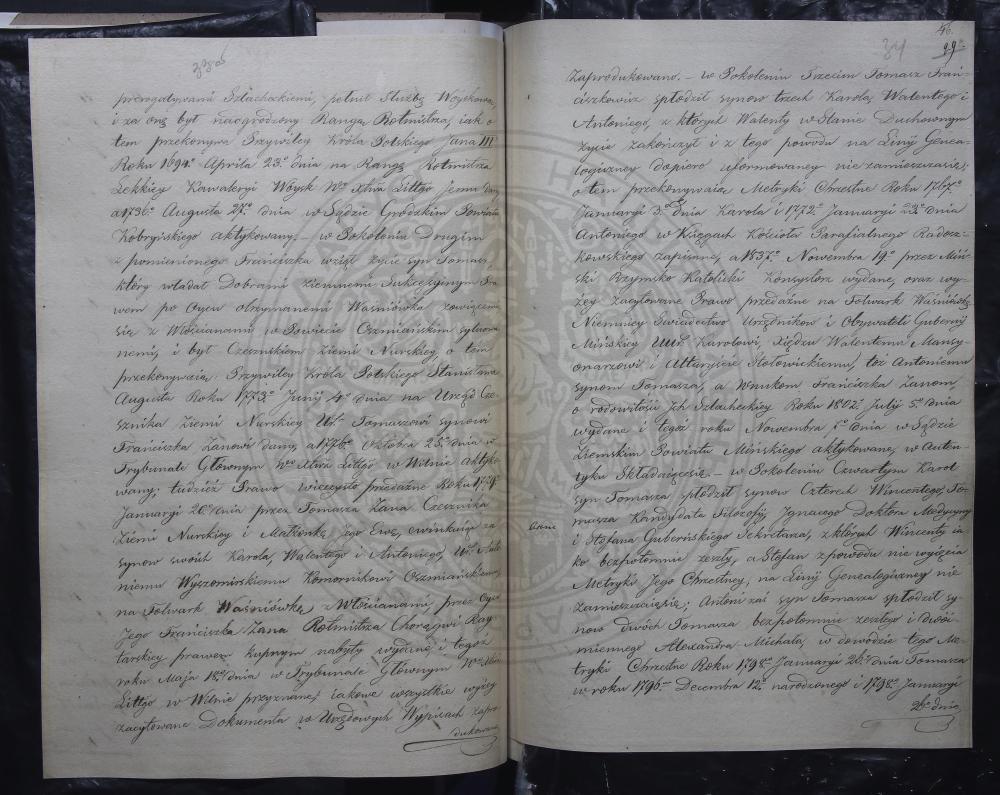 prerogatywami Szlacheckiemi, pełnił Służbę Woyskową,
i za onę był naogrodzony Rangą Rotmistrza, iak o
tem przekonywa Przywiley Króla Polskiego Jana III
Roku 1694. Aprila 23. dnia na Rangę Rotmistrza
Lekkiey Kawaleryi Woysk Wo Xtwa Littgo Jemu dany
a 1736. Augusta 27. dnia w Sądzie Grodzkim Powiatu
Kobryńskiego aktykowany. – w Pokoleniu Drugim
z pomienionego Franciszka wziął życie syn Tomasz,
który władał Dobrami ziemnemi Sukcessyinym Pra
wem po Oycu otrzymanemi Waśniówka zowiącemi
się z Włościanami w Powiecie Oszmiańskim sytuowa
nemi, i był Czesnikiem Ziemi Nurskiey, o tem
przekonywaią: Przywiley Króla Polskiego Stanisława
Augusta Roku 1773. Junij 4. dnia na Urząd Cze
sznika Ziemi Nurskiey Ur. Tomaszowi synowi
Franciszka Zanowi dany, a 1776. Oktobra 25. dnia w
Trybunale Głównym Wo Xtwa Littgo w Wilnie aktyko
wany; tudzież Prawo wieczysto przedażne Roku
Januaryi 20. dnia przez Tomasza Zana Czesznika
Ziemi Nurskiey i Małżonkę Jego Ewę, ewinkuiąc za
synow swoich Karola, Walentego i Antoniego, Ur. Anto
niemu Wyszomirskiemu Komornikowi Oszmiańskiemu,
na Folwark Waśniówkę z Włościanami, przez Oyca
Jego Franciszka Zana Rotmistrza Chorągwi Ray
tarskiey prawem kupnym nabyty wydane, i tegoż
roku Maja 18. dnia w Trybunale Głównym Wo Xtwa
Littgo w Wilnie przyznane; iakowe wszystkie wyżey
zacytowane Dokumenta w Urzędowych Wypisach zapro
dukowano
34
zaprodukowano. – w Pokoleniu Trzecim Tomasz Fran
ciszkowicz spłodził synow trzech Karola, Walentego i
Antoniego, z których Walenty w Stanie Duchownym
życie zakończył i z tego powodu na Linij Genea
logiczney dopiero uformowaney nie zamieszczasię;
o tem przekonywaią Metryki Chrzestne Roku 1767.
Januaryi 3. dnia Karola i 1772. Januaryi 23. dnia
Antoniego w Xięgach Kościoła Parafialnego Radosz
kowskiego zapisane, a 1837. Novembra 19. przez Miń
ski Rzymsko Katolicki Konsystorz wydane, oraz wy
żey zacytowane Prawo przedażne na Folwark Waśniówkę,
Niemniey Świadectwo Urzędnikow i Obywateli Gubernij
Mińskiey Karolowi, Xiędzu Walentemu Mansy
onarzowi i Altaryście Stołowickiemu, toż Antoniemu
synom Tomasza, a Wnukom Franciszka Zanom,
o rodowitości Ich Szlacheckiey Roku 1802. July 5. dnia
wydane i tegoż roku Nowembra dnia w Sądzie
Ziemskim Powiatu Mińskiego aktykowane, w Auten
tyku Składaiącesię. – w Pokoleniu Czwartym Karol
syn Tomasza spłodził synow Czterech Wincentego, To
masza Kandydata Filozofij, Ignacego Doktora Medycyny
i Stefana Guberńskiego Sekretarza, z których Wincenty ia
ko bezpotomnie zeszły, a Stefan z powodu nie wyięcia
Metryki Jego Chrzestney, na Linij Genealogiczney nie
zamieszczaiąsię; Antoni zaś syn Tomasza spłodził sy
now dwóch Tomasza bezpotomnie zeszłego i dwói
miennego Alexandra Michała, w dowodzie tego Me
tryki Chrzestne Roku 1798. Januaryi 26. dnia Tomasza
w roku 1796. Decembra 12. narodzonego i 1798. Januaryi
26. dnia